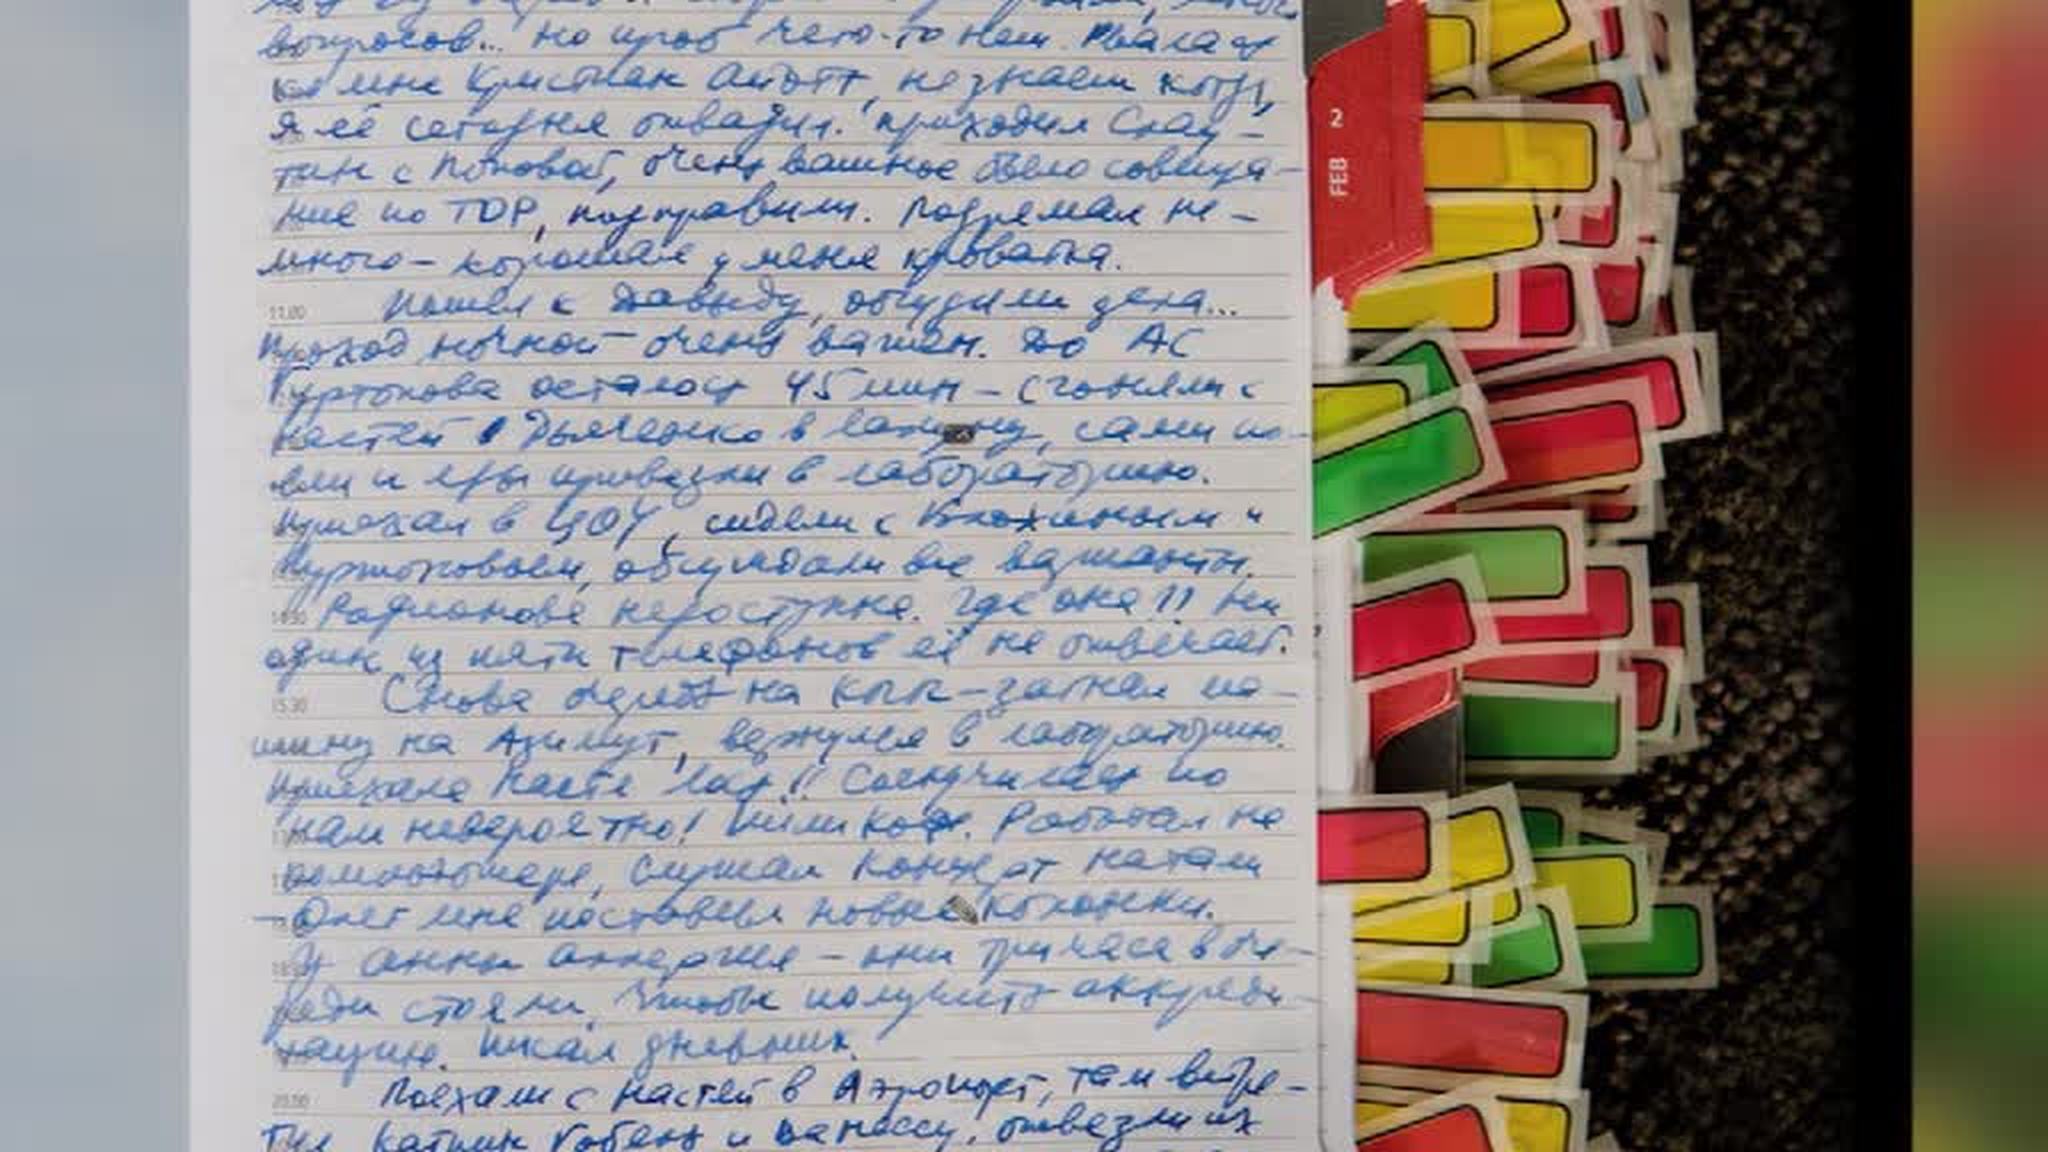 вопросов... но проб чего-то нет. Рвалась
ко мне Кристиан Айотт, не знаем когда
я её сегодня отвадил. Приходил Слау-
тин с Поповой, очень важное было совеща-
ние по ТДР, поправили. Подремал не-
много – хорошая у меня кроватка.
11.00 Пошел к Давыду, обсудили дела...
Проход ночной – очень важен. До АС
Куртокова осталось 45 мин – сгоняли с
Настей Дьяченко в лагуну, сами по-
ели и еды привезли в лабораторию.
Приехал в ЦОУ, сидели с Блохиным и
обсуждали все варианты.
14.30 Родионова недоступна. Где она!! Ни
один из пяти телефонов её не отвечает.
15.30 Снова на КПП – загнал ма-
шину на Азимут, вернулся в лабораторию.
Приехала Настя Соскучилась по
нам невероятно! Пили кофе. Работал на
компьютере, слушал концерт Натали
– Олег мне поставил новые колонки.
У Анны аллергия – они три часа в оче-
реди стояли, чтобы получить аккреди-
тацию. Писал дневник.
20.00 Поехали с Настей в Аэропорт, там встре-
тил Катрин и Ванессу, отвезли их
2
FEB